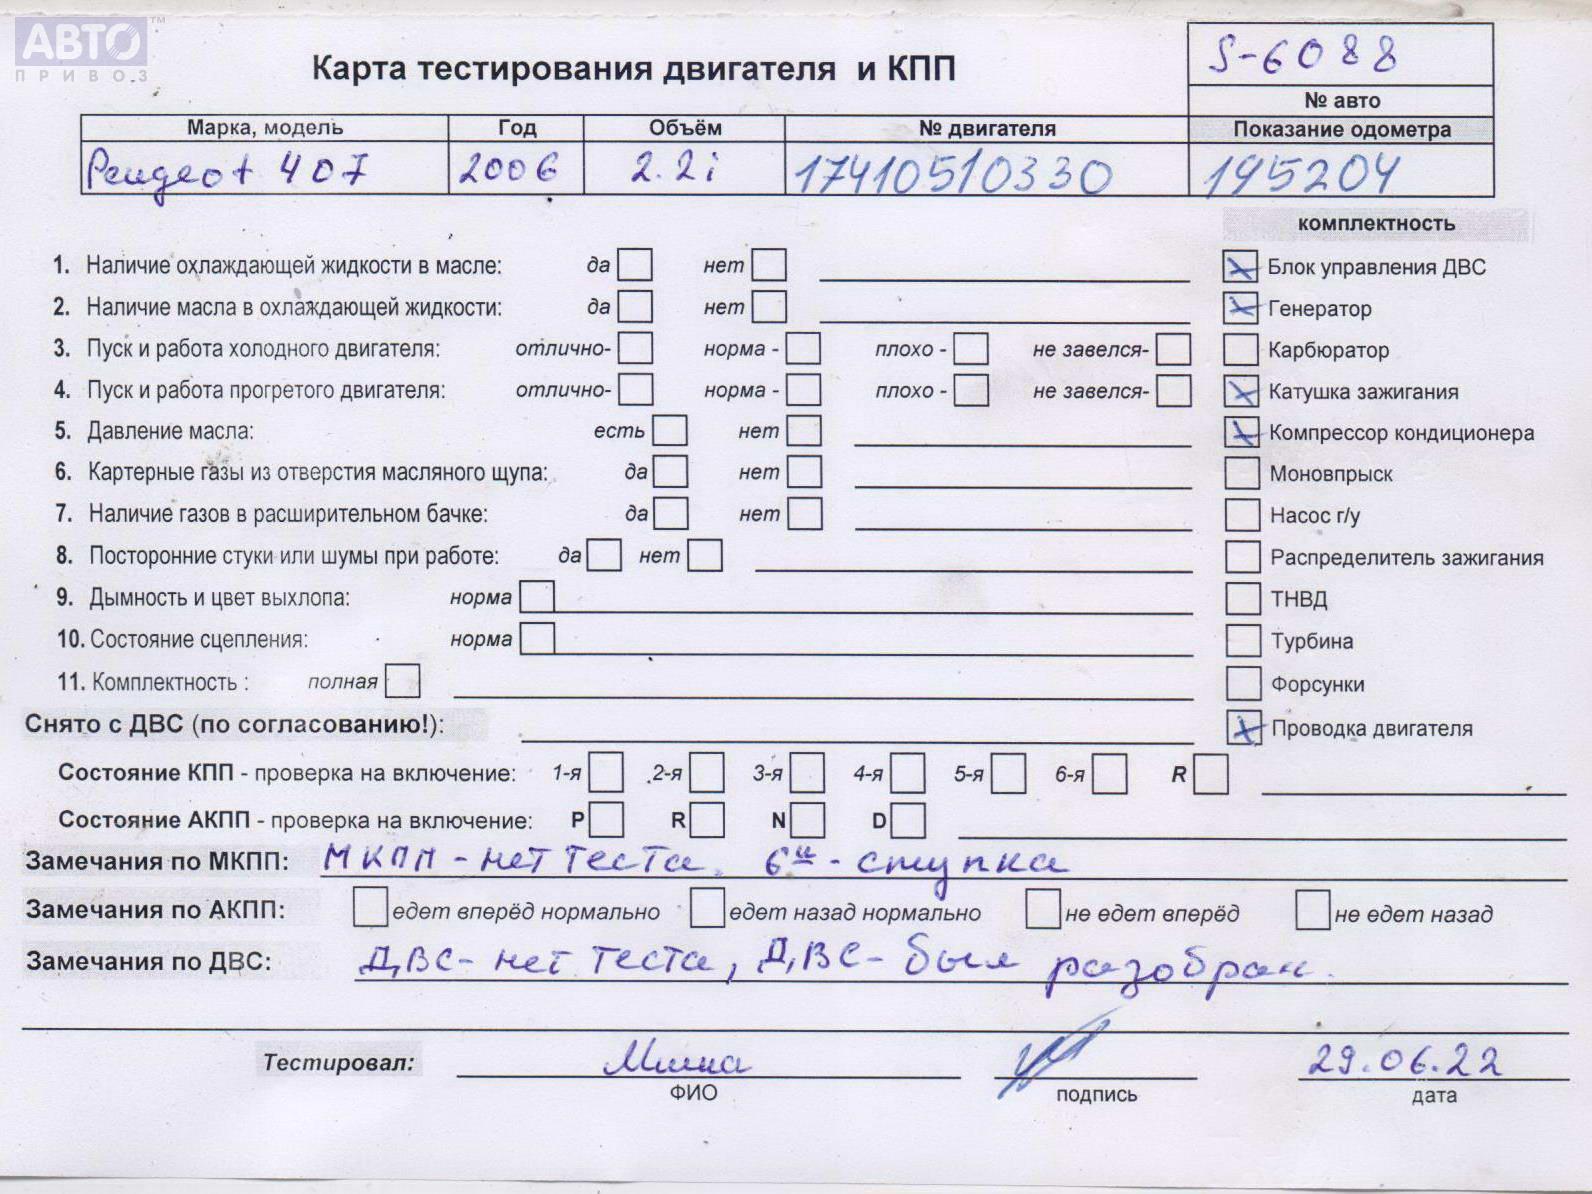 АВТО™
ПРИВОЗ
Карта тестирования двигателя и КПП
S-6088
№ авто
Марка, модель Год Объём № двигателя Показание одометра
Peugeot 407 2006 2.2i 17410510330 195204
комплектность
1. Наличие охлаждающей жидкости в масле: да нет Блок управления ДВС
2. Наличие масла в охлаждающей жидкости: да нет Генератор
3. Пуск и работа холодного двигателя: отлично- норма - плохо - не завелся- Карбюратор
4. Пуск и работа прогретого двигателя: отлично- норма - плохо - не завелся- Катушка зажигания
5. Давление масла: есть нет Компрессор кондиционера
6. Картерные газы из отверстия масляного щупа: да нет Моновпрыск
7. Наличие газов в расширительном бачке: да нет Насос г/у
8. Посторонние стуки или шумы при работе: да нет Распределитель зажигания
9. Дымность и цвет выхлопа: норма ТНВД
10. Состояние сцепления: норма Турбина
11. Комплектность : полная Форсунки
Снято с ДВС (по согласованию!): Проводка двигателя
Состояние КПП - проверка на включение: 1-я 2-я 3-я 4-я 5-я 6-я R
Состояние АКПП - проверка на включение: P R N D
Замечания по МКПП: МКПП - нет теста. 6и - ступка
Замечания по АКПП: едет вперёд нормально едет назад нормально не едет вперёд не едет назад
Замечания по ДВС: ДВС - нет теста, ДВС - был разобран.
Тестировал: Миша 29.06.22
ФИО подпись дата